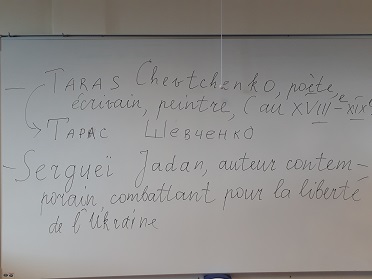 – TARAS Chevtchenko, poète,
écrivain, peintre, (au XVIIIe-XIXe
→ ТАРАС ШЕВЧЕНКО
– Serguei Jadan, auteur contem-
porain, combattant pour la liberté
de l'Ukraine